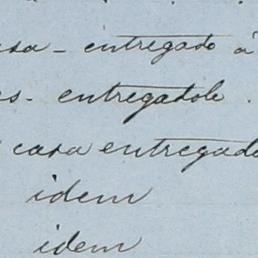 casa - entregado á
es. entregadole.
casa entregado
idem
idem